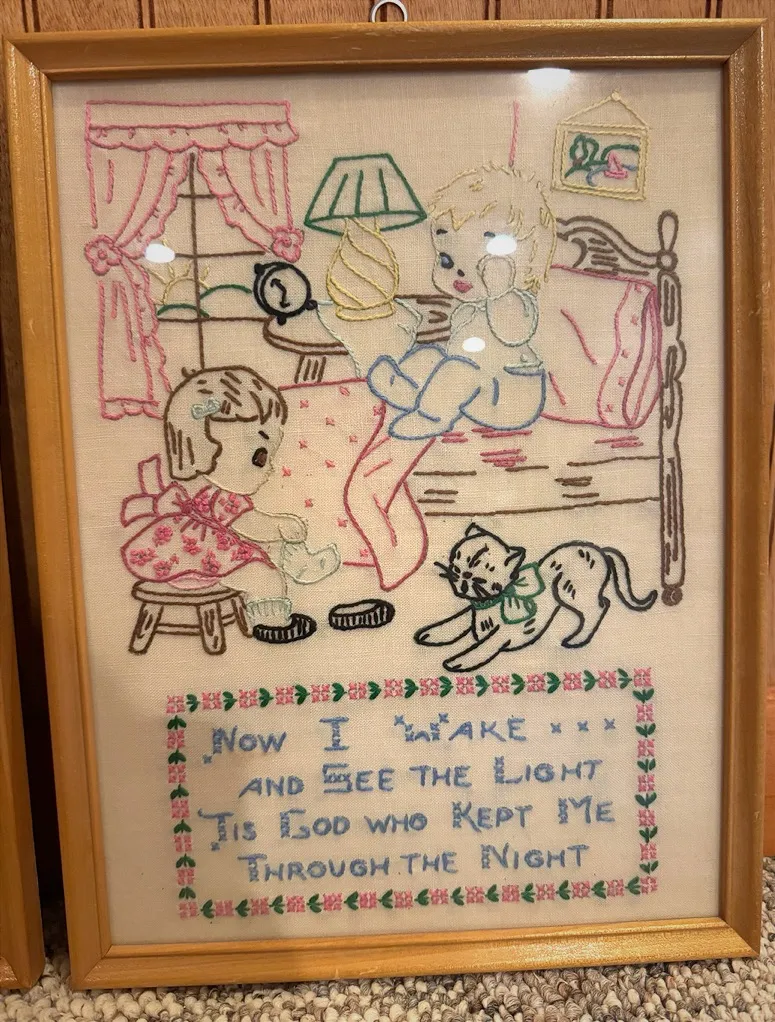 Now I Wake ...
and See the Light
Tis God who Kept Me
Through the Night